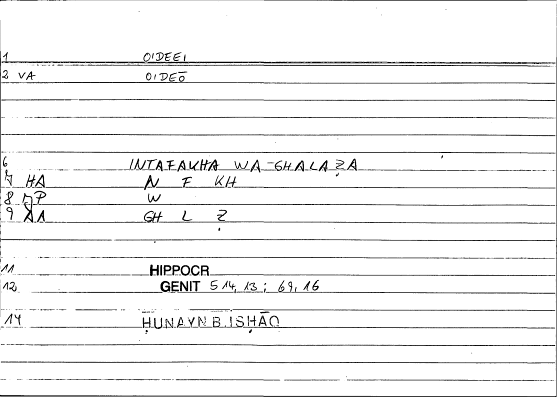 1 O'DEEI
2 VA O'DEŌ
6 INTAFAKHA WA-GHALAẒA
7 HA N F KH
8 P W
9 AA GH L Ẓ
11 HIPPOCR
12 GENIT 514,13; 69,16
14 ḤUNAYN B. ISḤĀQ